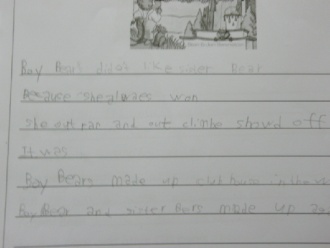 Boy Bears didnt like sister Bear
Because she alwaes won
she out ran and out clmbe shoud off
It was
Boy Bears made up club house in the
Boy Bear and sister Bers made up and